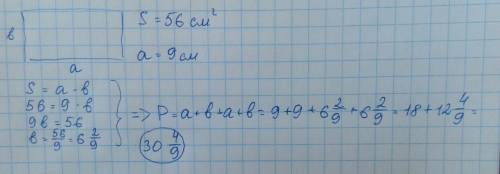 S = 56 см²
в
a = 9 см
a
S = a · в
56 = 9 · в
9в = 56
в = 56/9 = 6 2/9
=> P = a + в + a + в = 9 + 9 + 6 2/9 + 6 2/9 = 18 + 12 4/9 =
30 4/9